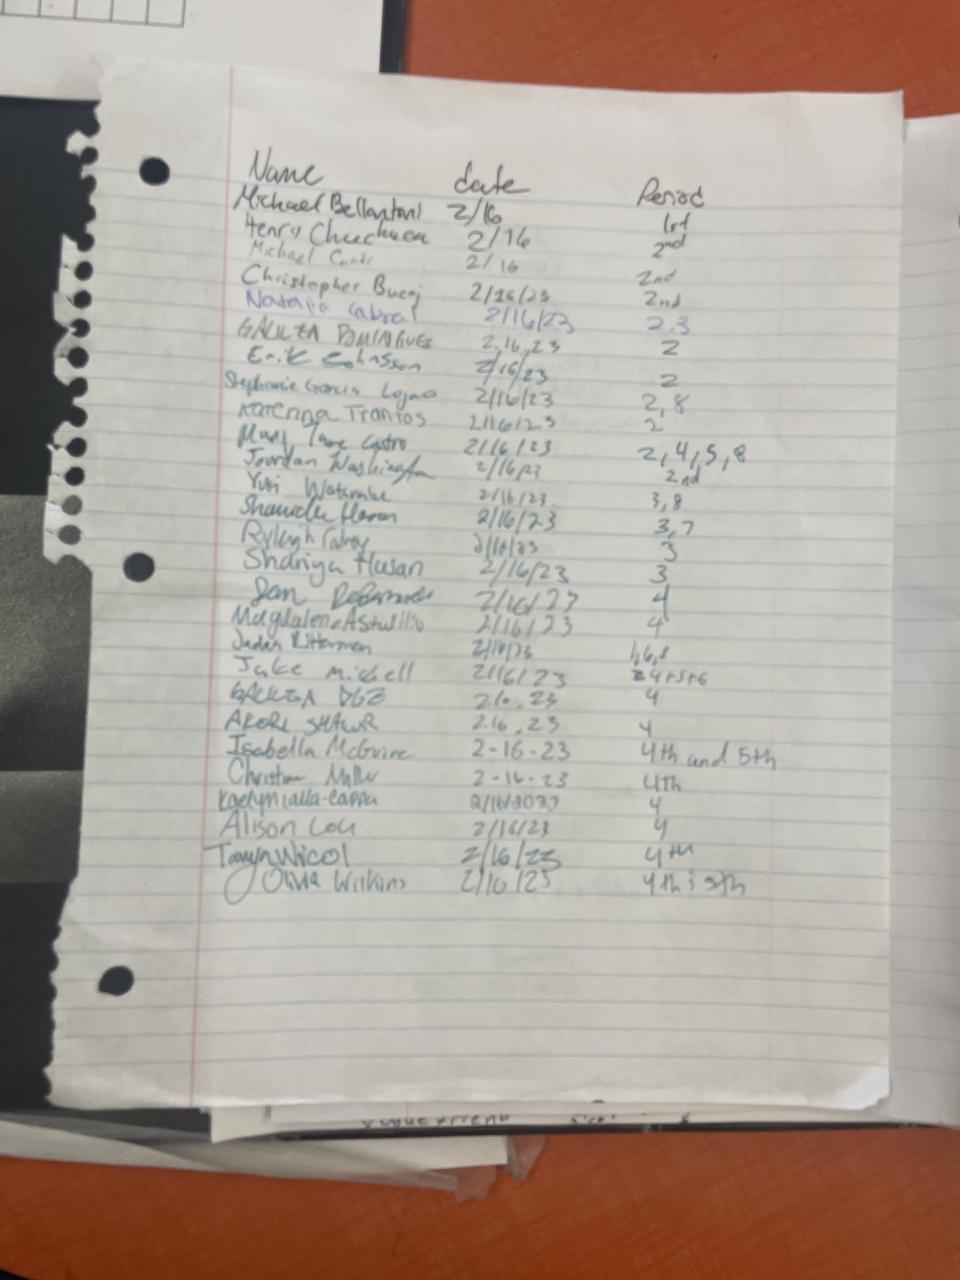 Name date Period
Michael Bellantoni 2/16 1st
Henry Chuchuca 2/16 2nd
Michael Conti 2/16 2nd
Christopher Bucaj 2/16/23 2nd
Natalia Cabral 2/16/23 2,3
2.16.23 2
Erik Johnsson 2/16/23 2
Stephanie Garcia Lojano 2/16/23 2,8
Katerina Trantos 2/16/23 2
Mary Jane Castro 2/16/23 2,4,5,8
Jourdan Washington 2/16/23 2nd
Yuri Watanabe 2/16/23 3,8
2/16/23 3,7
Ryleigh 2/16/23 3
Shaniya Husan 2/16/23 3
2/16/23 4
Magdalena Astudillo 2/16/23 4
Ritterman 2/16/23 1,6,8
Jake Michell 2/16/23 4+5+6
23 4
2.16.23 4
Isabella McGuire 2-16-23 4th and 5th
Christine Miller 2-16-23 4th
2/16/2023 4
Alison Lou 2/16/23 4
Taryn Nicol 2/16/23 4th
Olivia Wilkins 2/16/23 4th